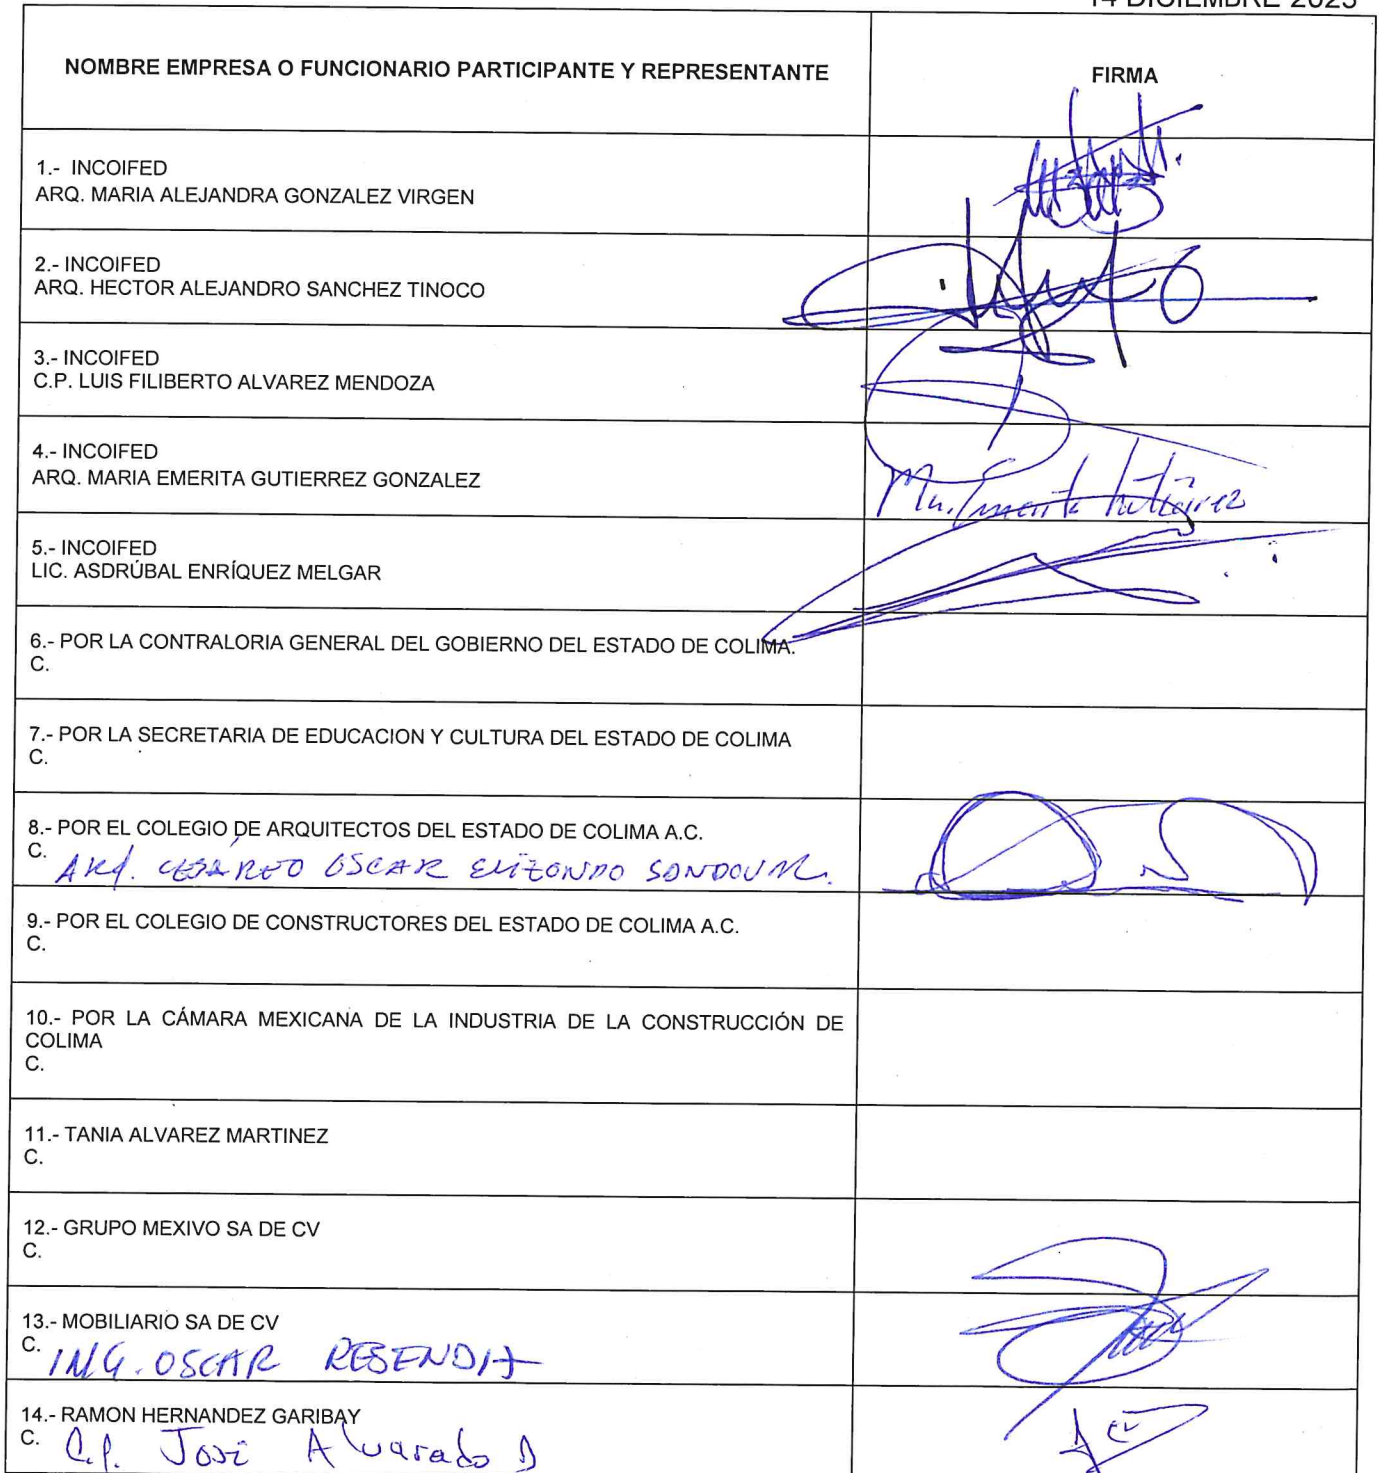 14 DICIEMBRE 2023
NOMBRE EMPRESA O FUNCIONARIO PARTICIPANTE Y REPRESENTANTE
FIRMA
1.- INCOIFED
ARQ. MARIA ALEJANDRA GONZALEZ VIRGEN
2.- INCOIFED
ARQ. HECTOR ALEJANDRO SANCHEZ TINOCO
3.- INCOIFED
C.P. LUIS FILIBERTO ALVAREZ MENDOZA
4.- INCOIFED
ARQ. MARIA EMERITA GUTIERREZ GONZALEZ
Ma. Emerita Gutierrez
5.- INCOIFED
LIC. ASDRÚBAL ENRÍQUEZ MELGAR
6.- POR LA CONTRALORIA GENERAL DEL GOBIERNO DEL ESTADO DE COLIMA.
C.
7.- POR LA SECRETARIA DE EDUCACION Y CULTURA DEL ESTADO DE COLIMA
C.
8.- POR EL COLEGIO DE ARQUITECTOS DEL ESTADO DE COLIMA A.C.
C. ARQ. CESAREO OSCAR ELIZONDO SANDOVAL.
9.- POR EL COLEGIO DE CONSTRUCTORES DEL ESTADO DE COLIMA A.C.
C.
10.- POR LA CÁMARA MEXICANA DE LA INDUSTRIA DE LA CONSTRUCCIÓN DE
COLIMA
C.
11.- TANIA ALVAREZ MARTINEZ
C.
12.- GRUPO MEXIVO SA DE CV
C.
13.- MOBILIARIO SA DE CV
C. ING. OSCAR RESENDIZ
14.- RAMON HERNANDEZ GARIBAY
C. C.P. José Alvarado